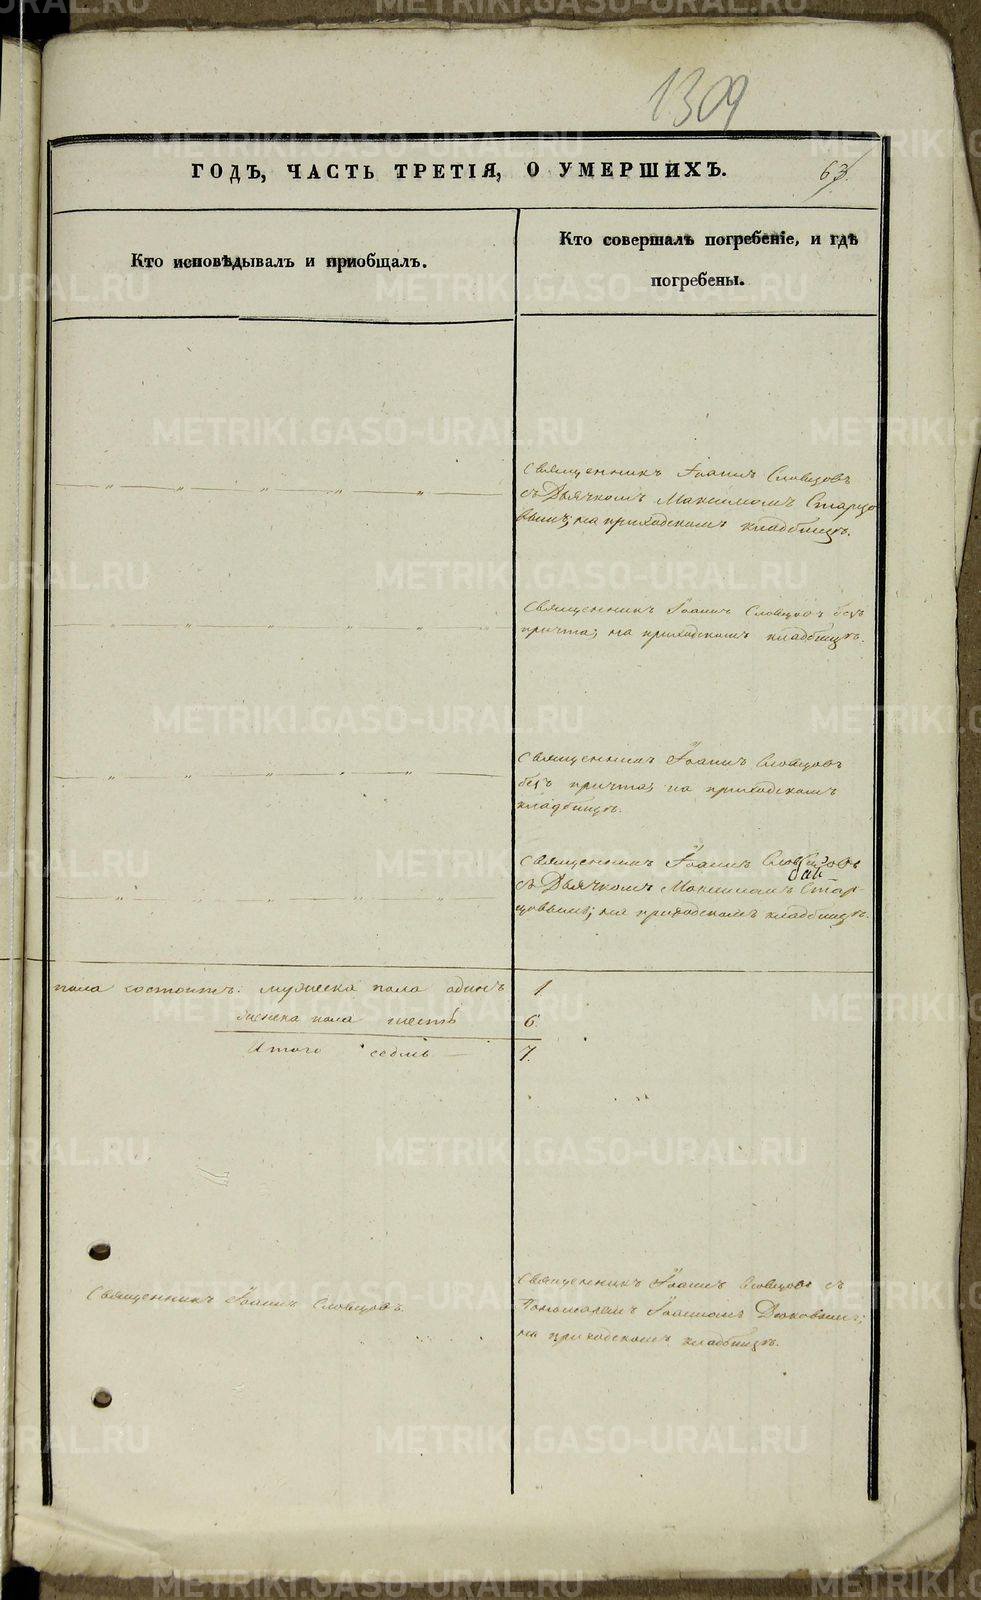 1309
ГОДЪ, ЧАСТЬ ТРЕТІЯ, О УМЕРШИХЪ.
63.
Кто исповѣдывалъ и пріобщалъ.
Кто совершалъ погребеніе, и гдѣ
погребены.
Священникъ Іоаннъ Словцовъ
съ Дьячкомъ Максимомъ Старцо
вымъ; на приходскомъ кладбищѣ.
Священникъ Іоаннъ Словцовъ безъ
причта; на приходскомъ кладбищѣ.
Священникъ Іоаннъ Словцовъ
безъ причта; на приходскомъ
кладбищѣ.
Священникъ Іоаннъ Словцовъ
съ Дьячкомъ Максимомъ Стар-
цовымъ; на приходскомъ кладбищѣ.
пола состоитъ: мужеска пола одинъ 1
женска пола шесть 6.
Итого седмь 7.
Священникъ Іоаннъ Словцовъ.
Священникъ Іоаннъ Словцовъ съ
Пономаремъ Іоанномъ
на приходскомъ кладбищѣ.
METRIKI.GASO-URAL.RU